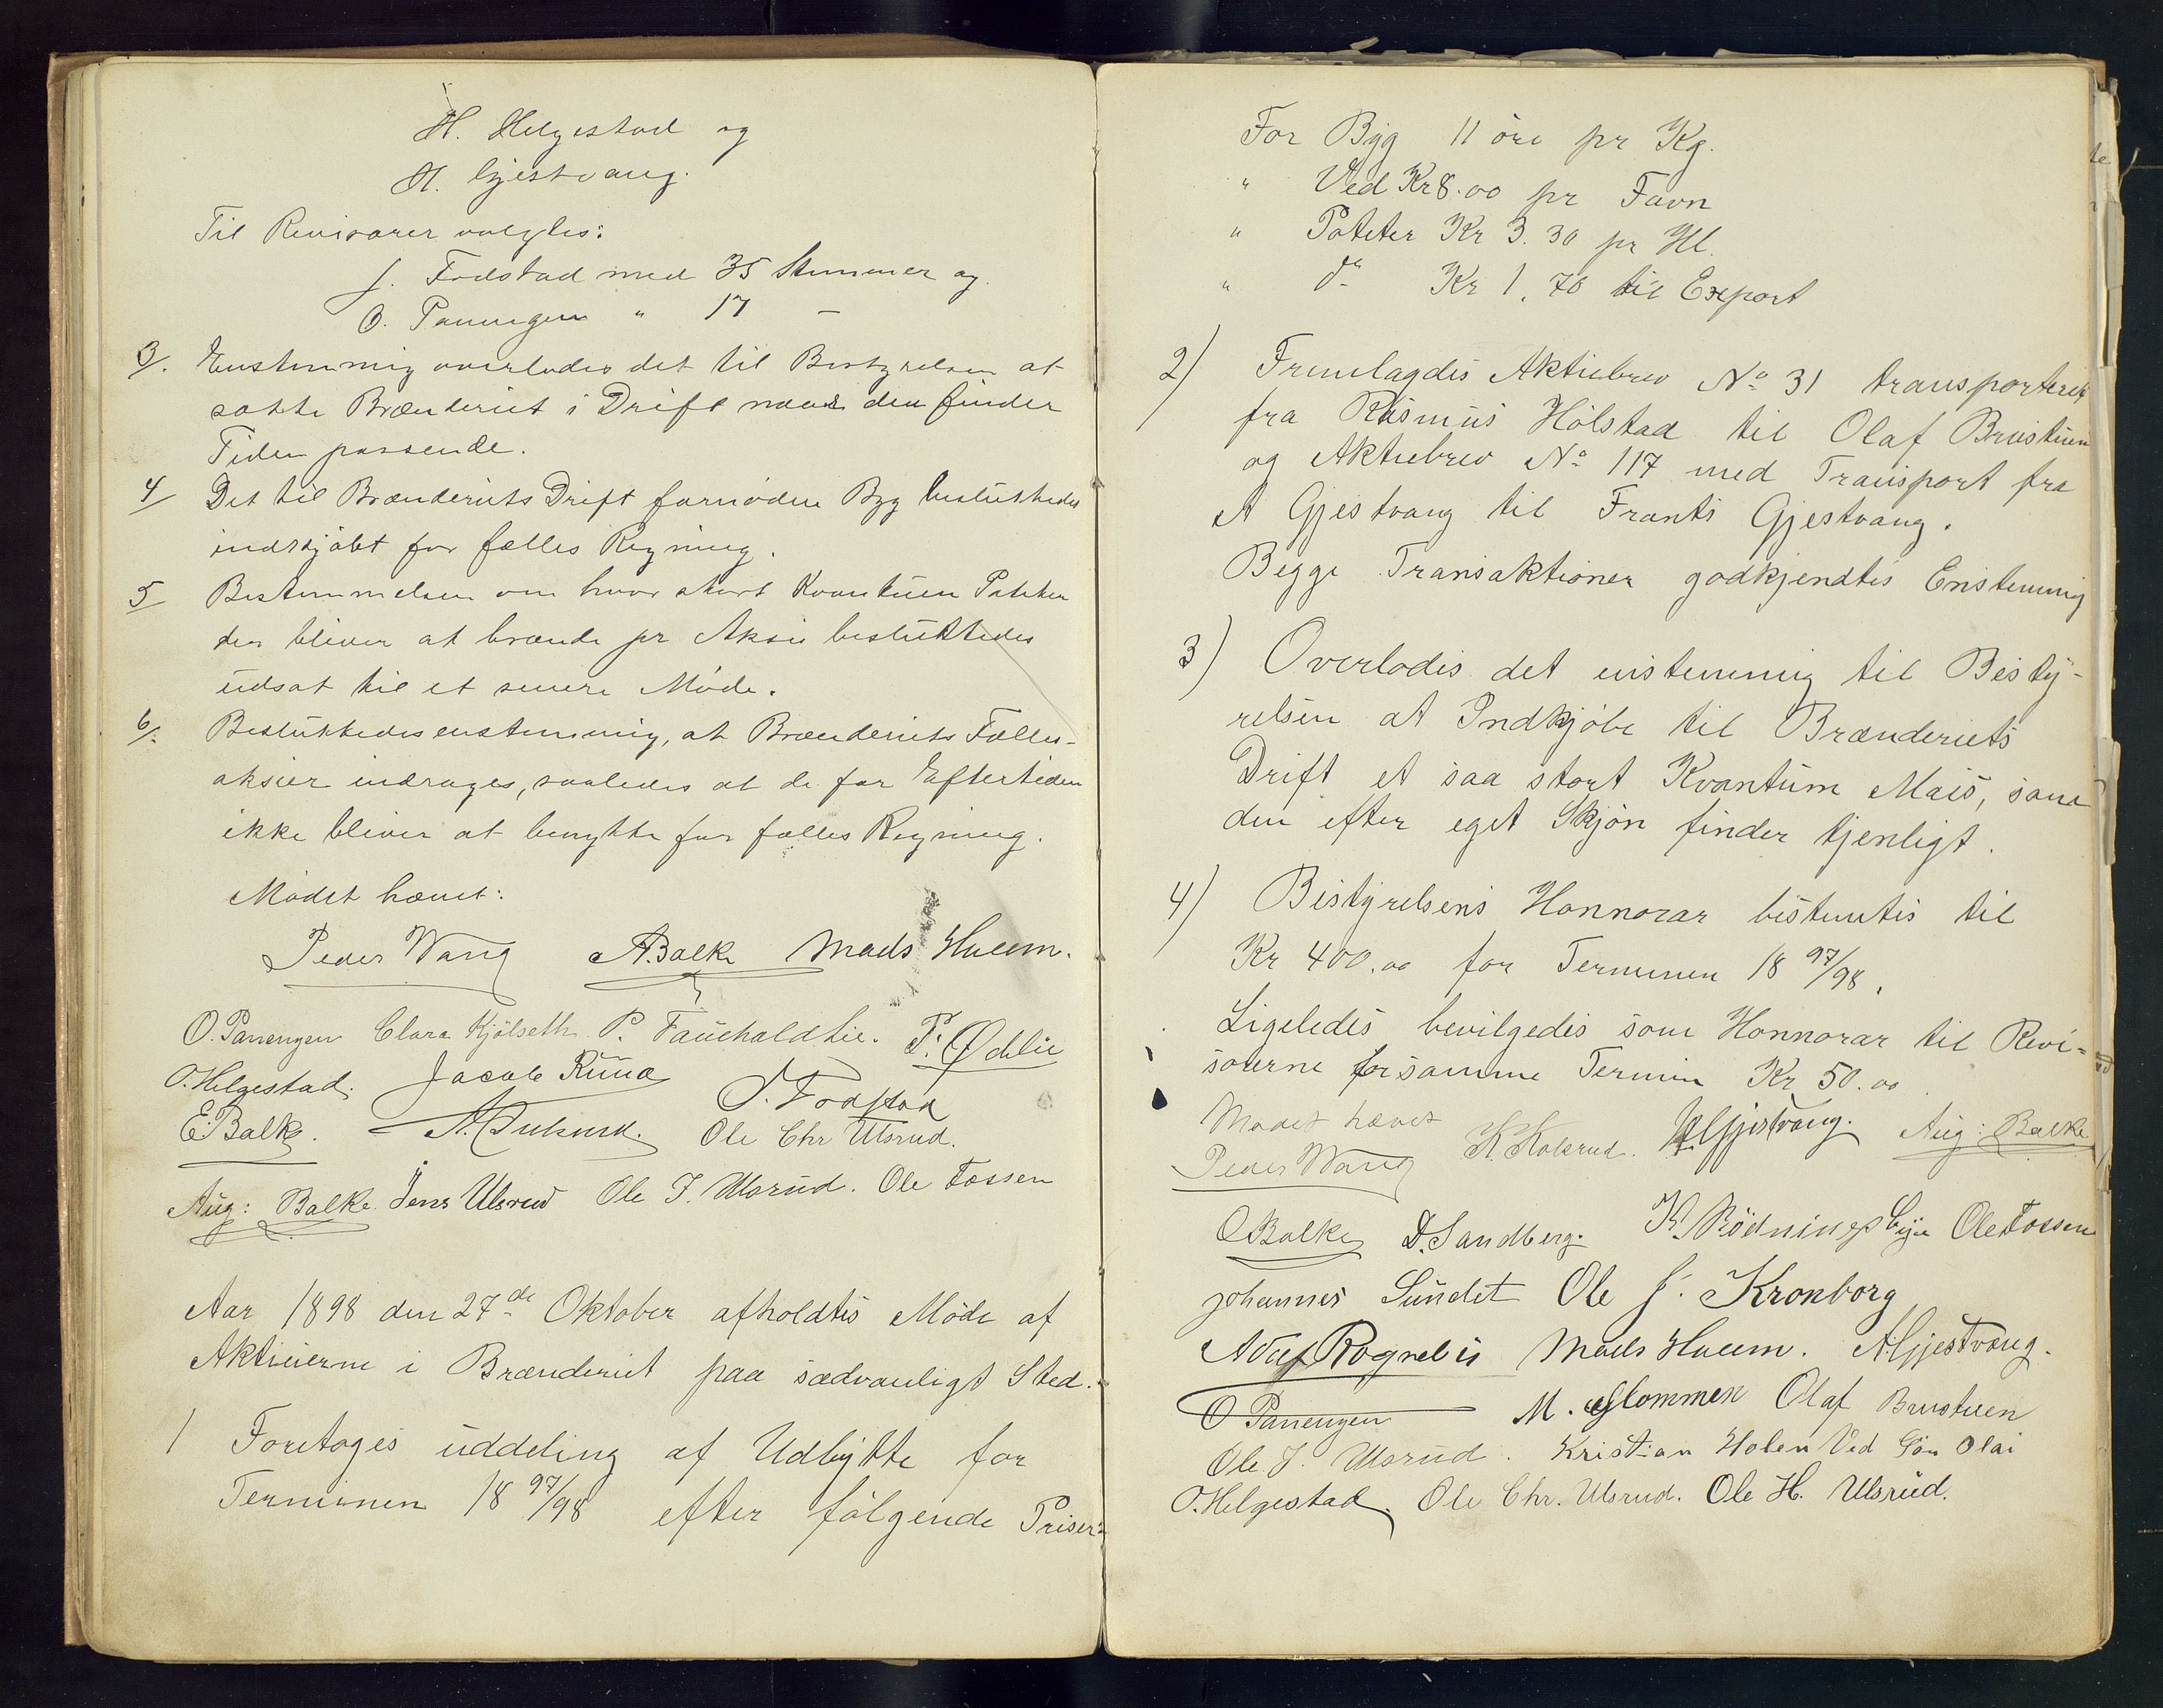 H. Helgestad og
H. Gjestvang.
Til Revisorer valgtes:
J. Fodstad med 35 Stemmer og
O. Panengen " 17 —
3/. Enstemmig overlodes det til Bestyrelsen at
sætte Brænderiet i Drift naar den finder
Tiden passende.
4/ Det til Brænderiets Drift fornødne Byg besluttedes
indkjøbt for fælles Regning.
5/ Bestemmelsen om hvor stort Kvantum Poteter
der bliver at brænde pr Aksie besluttedes
udsat til et senere Møde.
6/. Besluttedes enstemmig, at Brænderiets Fælles-
aksier inddrages, saaledes at de for Eftertiden
ikke bliver at benytte for fælles Regning.
Mødet hævet:
Peder Wang A. Balke Mads Hveem.
O. Panengen Clara Kjölseth P. Fauchaldlie. P. Ødelie
O. Helgestad. Jacob Runa J. Fodstad
E. Balke. Ole Chr Ulsrud.
Aug: Balke Jens Ulsrud Ole J. Ulsrud. Ole Fossen
Aar 1898 den 27de Oktober afholdtes Møde af
Aktieierne i Brænderiet paa sædvanligt Sted.
1 Foretoges uddeling af Udbytte for
Terminen 18 97/98 efter følgende Priser:
For Byg 11 öre pr Kg.
" Ved Kr 8.00 pr Favn
" Poteter Kr 3.30 pr Hl.
" do Kr 1,70 til Export
2) Fremlagdes Aktiebrev No 31 transporteret
fra Rasmus Holstad til Olaf Brustuen
og Aktiebrev No 117 med Transport fra
A Gjestvang til Frants Gjestvang.
Begge Transaktioner godkjendtes Enstemmig
3) Overlodes det enstemmig til Besty-
relsen at Indkjøbe til Brænderiets
Drift et saa stort Kvantum Mais, som
den efter eget Skjøn finder tjenligt.
4) Bestyrelsens Honnorar bestemtes til
Kr 400.00 for Terminen 18 97/98.
Ligeledes bevilgedes som Honnorar til Revi-
sorerne for samme Termin Kr 50.00
Mødet hævet
Peder Wang K. Kolsrud. H Gjestvang. Aug: Balke
O Balke D. Sandberg. K. Rödningsbye Ole Fossen
Johannes Sundet Ole J. Kronborg
Adolf Rognelie Mads Hveem. A. Gjestvang.
O Panengen M. Glommen Olaf Brustuen
Ole J. Ulsrud. Kristian Holen Ved Søn Olai
O. Helgestad. Ole Chr. Ulsrud. Ole H. Ulsrud.